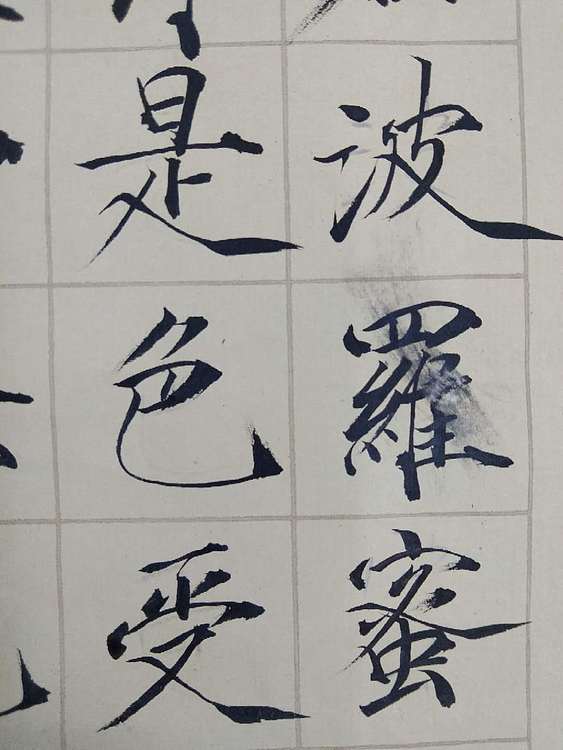 波羅蜜
是色受